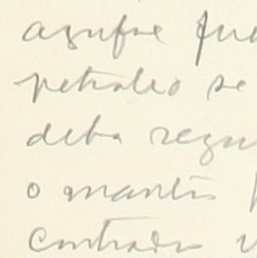 azufre fu
petroleo se
deba regu
o mantis
contrado